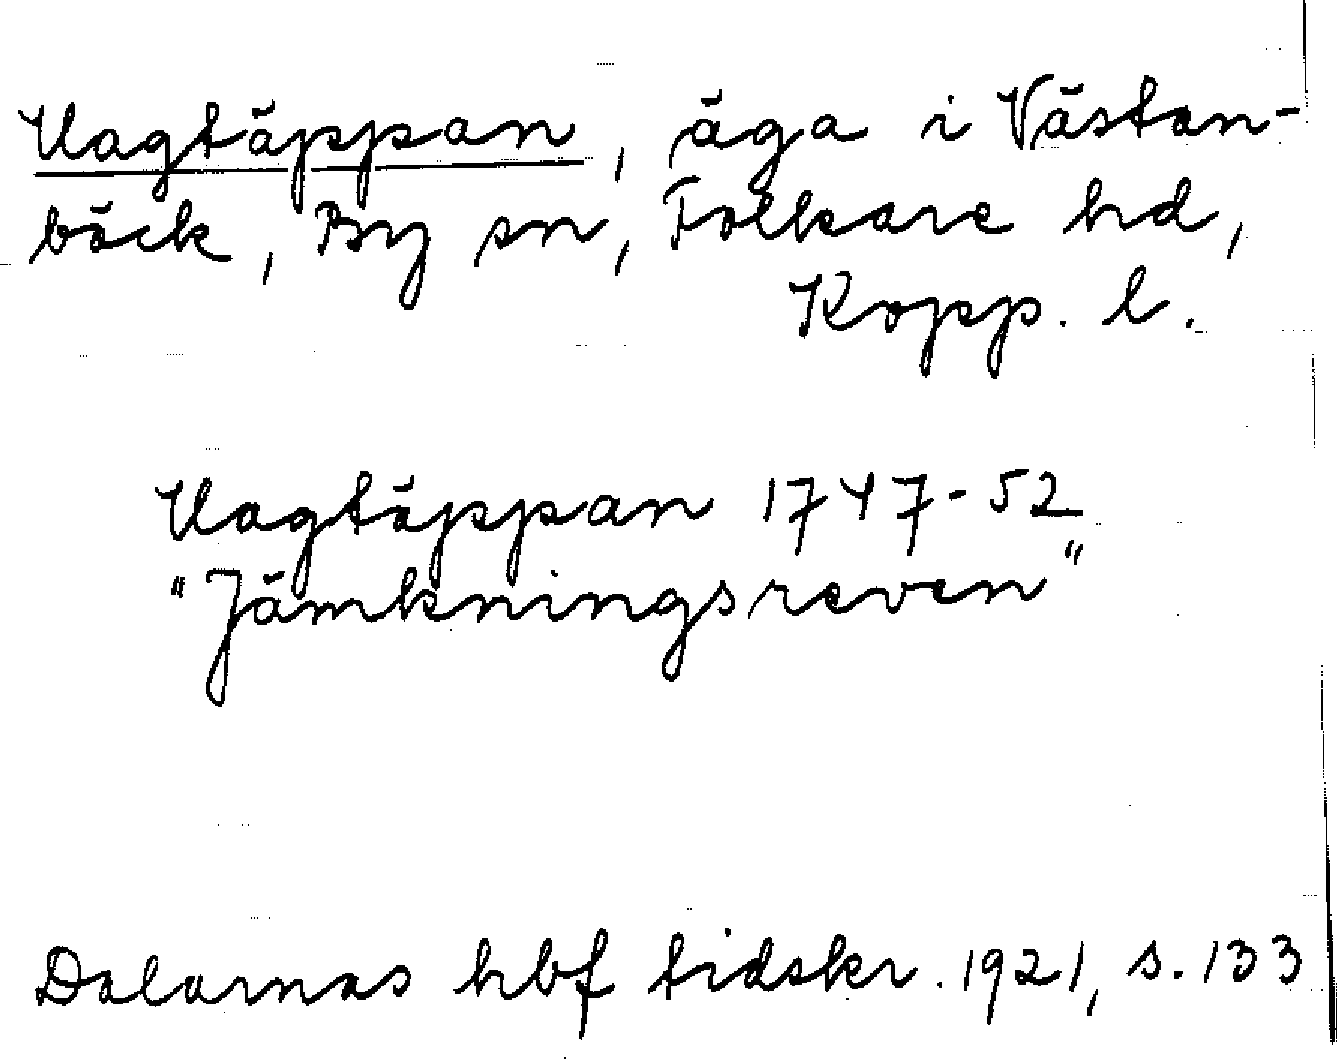 Vagtäppan, äga i Västan-
böck, By sn, Folkare hd,
Kopp. l.
Vagtäppan 1747-52
"Jämkningsreven"
Dalarnas hbf tidskr. 1921, s. 133